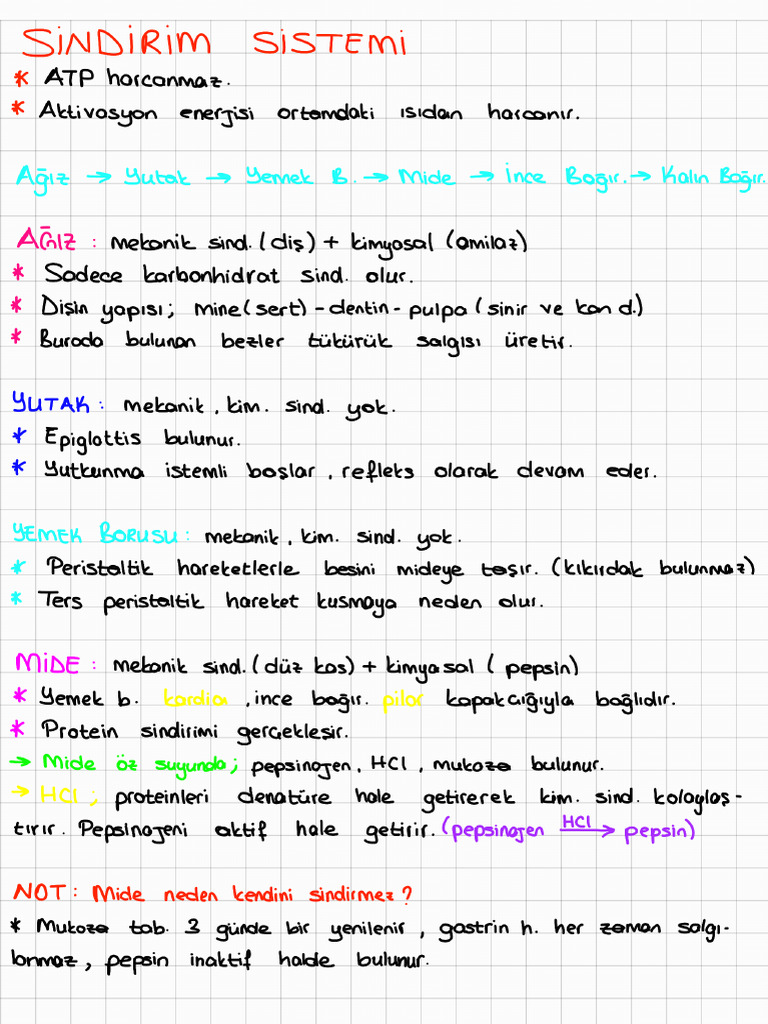 SİNDİRİM SİSTEMİ
* ATP harcanmaz.
* Aktivasyon enerjisi ortamdaki ısıdan harcanır.
Ağız → Yutak → Yemek B. → Mide → İnce Bağır. → Kalın Bağır.
AĞIZ : mekanik sind. (diş) + kimyasal (amilaz)
* Sadece karbonhidrat sind. olur.
* Dişin yapısı; mine(sert) - dentin - pulpa (sinir ve kan d.)
* Burada bulunan bezler tükürük salgısı üretir.
YUTAK : mekanik, kim. sind. yok.
* Epiglottis bulunur.
* Yutkunma istemli başlar, refleks olarak devam eder.
YEMEK BORUSU : mekanik, kim. sind. yok.
* Peristaltik hareketlerle besini mideye taşır. (kıkırdak bulunmaz)
* Ters peristaltik hareket kusmaya neden olur.
MİDE : mekanik sind. (düz kas) + kimyasal ( pepsin)
* Yemek b. kardia, ince bağır. pilor kapakcığıyla bağlıdır.
* Protein sindirimi gerçekleşir.
→ Mide öz suyunda; pepsinojen, HCl, mukoza bulunur.
→ HCl; proteinleri denatüre hale getirerek kim. sind. kolaylaş-
tırır. Pepsinojeni aktif hale getirir. (pepsinojen HCl → pepsin)
NOT : Mide neden kendini sindirmez?
* Mukoza tab. 3 günde bir yenilenir, gastrin h. her zaman salgı-
lanmaz, pepsin inaktif halde bulunur.